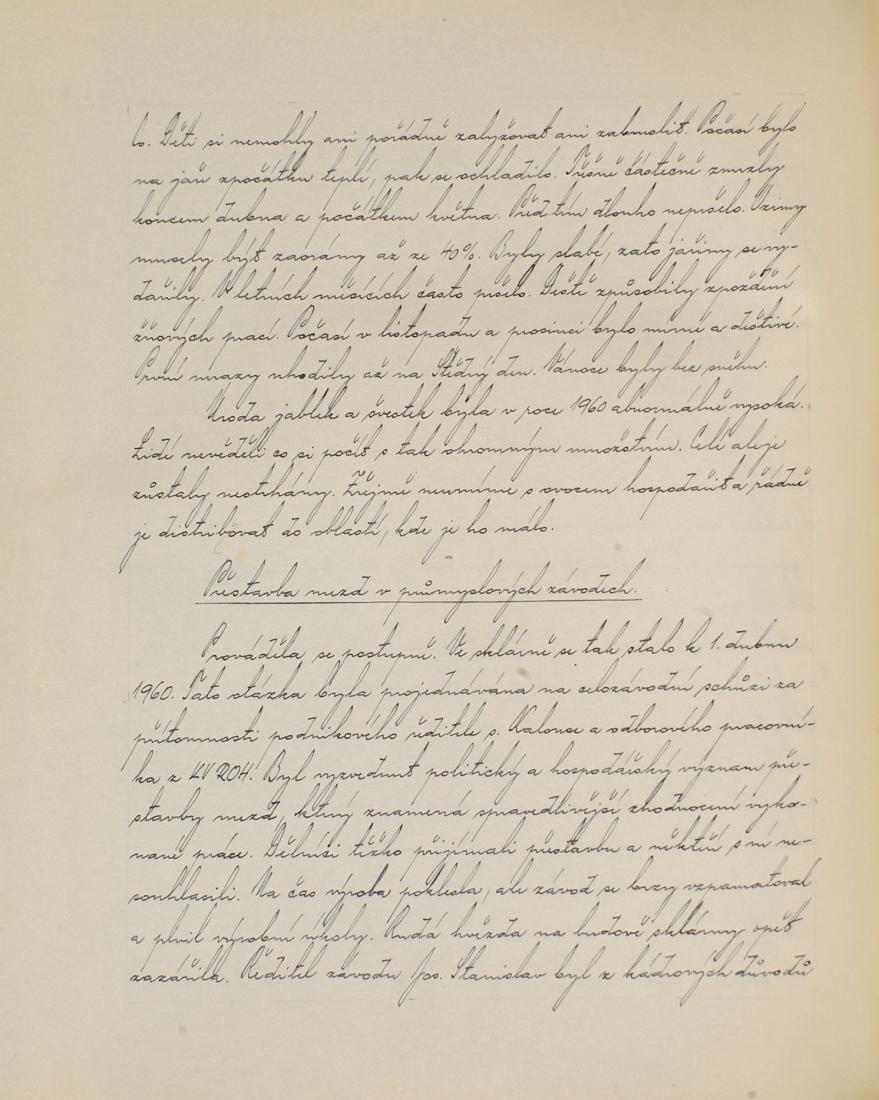 lo. Děti si nemohly ani pořádně zalyžovat ani zabruslit. Počasí bylo
na jaře zpočátku teplé, pak se ochladilo. Třešně částečně zmrzly
koncem dubna a počátkem května. Předtím dlouho nepršelo. Ozimy
musely být zaorány až ze 40%. Byly slabé, zato jařiny se vy-
dařily. V letních měsících často pršelo. Deště způsobily zpoždění
žňových prací. Počasí v listopadu a prosinci bylo mírné a deštivé.
První mrazy uhodily až na Štědrý den. Vánoce byly bez sněhu.
Úroda jablek a švestek byla v roce 1960 abnormálně vysoká.
Lidé nevěděli co si počít s tak ohromným množstvím. Celé aleje
zůstaly nestrhány. Zřejmě neumíme s ovocem hospodařit a řádně
je distribovat do oblastí, kde je ho málo.
Přestavba mezd v průmyslových závodech.
Prováděla se postupně. Ve sklárně se tak stalo k 1. dubnu
1960. Tato otázka byla projednávána na celozávodní schůzi za
přítomnosti podnikového ředitele s. Kalouse a odborového pracovní-
ka z KV ROH. Byl vyzvednut politický a hospodářský význam pře-
stavby mezd, který znamená spravedlivější zhodnocení vyko-
nané práce. Dělníci těžko přijímali přestavbu a někteří s ní ne-
souhlasili. Na čas výroba poklesla, ale závod se brzy vzpamatoval
a plnil výrobní úkoly. Rudá hvězda na budově sklárny opět
zazářila. Ředitel závodu Jos. Stanislav byl z kádrových důvodů